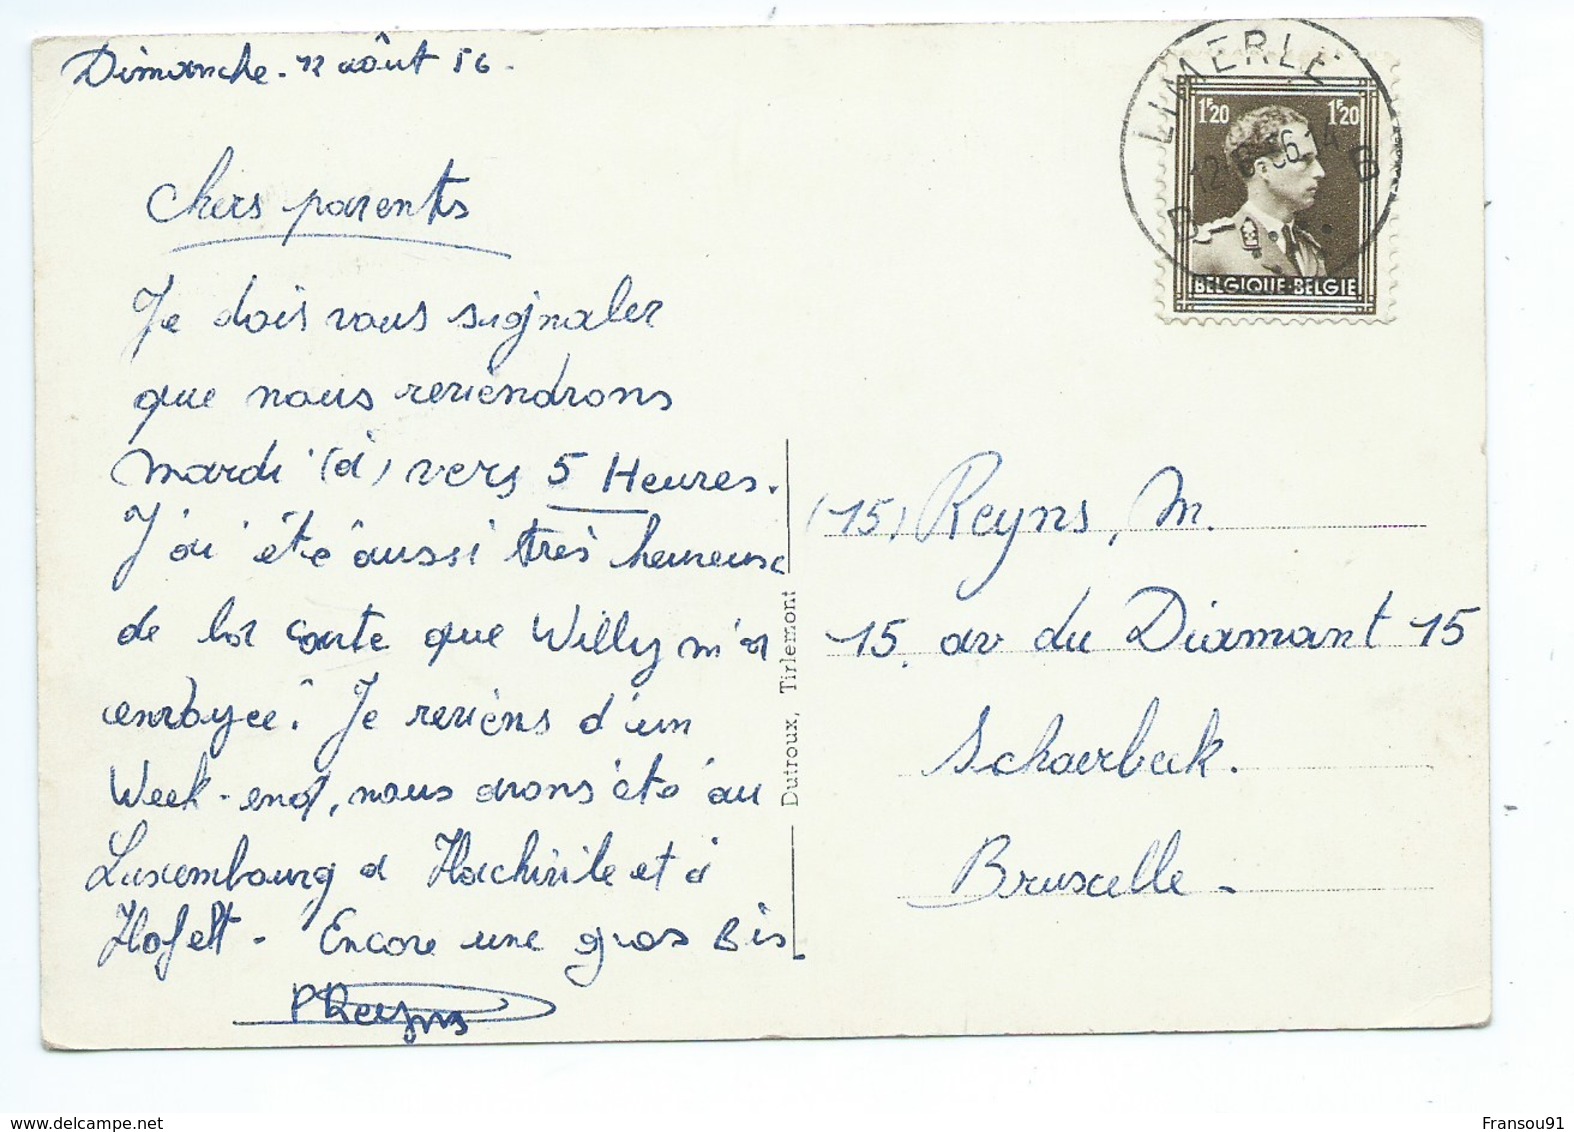 Dimanche. 12 août 56.
Chers parents
Je dois vous signaler
que nous reviendrons
mardi (à) vers 5 Heures.
J'ai été aussi très heureuse
de la carte que Willy m'a
envoyée. Je reviens d'un
Week-end, nous avons été au
Luxembourg a Hachiville et à
Hofelt - Encore une gros Bis
P Reyns
Dutroux, Tirlemont
LIMERLE
12-8-56.14
B
1F20 1F20
BELGIQUE-BELGIE
(15) Reyns, M.
15, av du Diamant 15
Schaerbeek.
Bruxelle -
www.delcampe.net
Fransou91